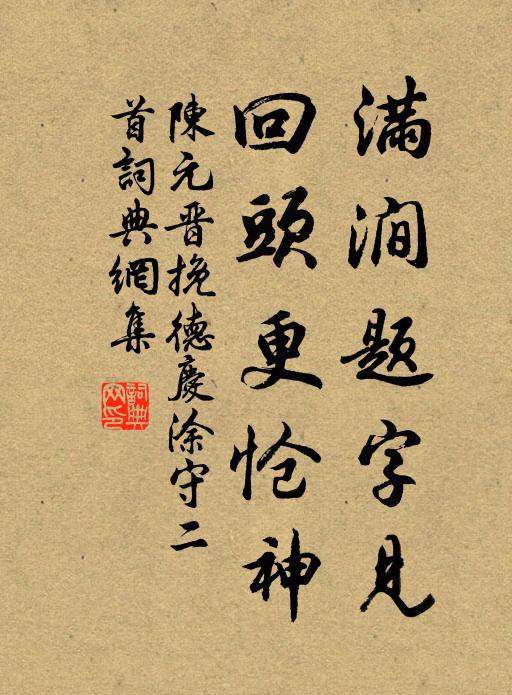 滿澗題字見
回頭更愴神
陳元晉挽德慶涂守二
首詞典網集
詞典
网印